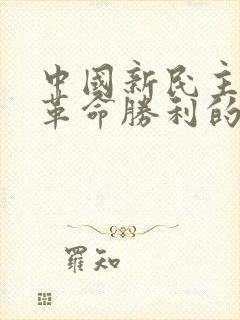 中國新民主
革命勝利的
羅知